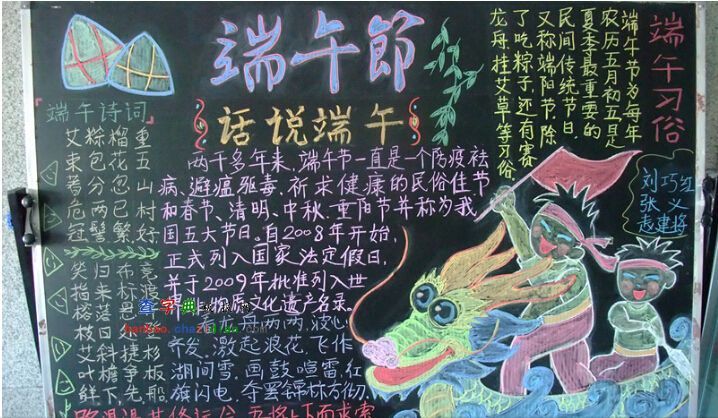 端午節
话说端午
两千多年来,端午节一直是一个防疫祛
病、避瘟驱毒、祈求健康的民俗佳节
和春节、清明、中秋、重阳节并称为我
国五大节日,自2008年开始,
正式列入国家法定假日,
并于2009年批准列入世
物质文化遗产名录。
两两,波心
齐发,激起浪花,飞作
湖间雪,画鼓喧雷,红
旗闪电,夺罢锦标方彻
端午诗词
重五山村好
榴花忽已繁
粽包分两髻
艾束著危冠
归来落日斜檐下
笑指榕枝艾叶鲜
端午习俗
端午节为每年
农历五月初五是
夏季最重要的
民间传统节日,
又称端阳节.除
了吃粽子,还有赛
龙舟,挂艾草等习俗.
刘巧红
张义
赵建将
查字典